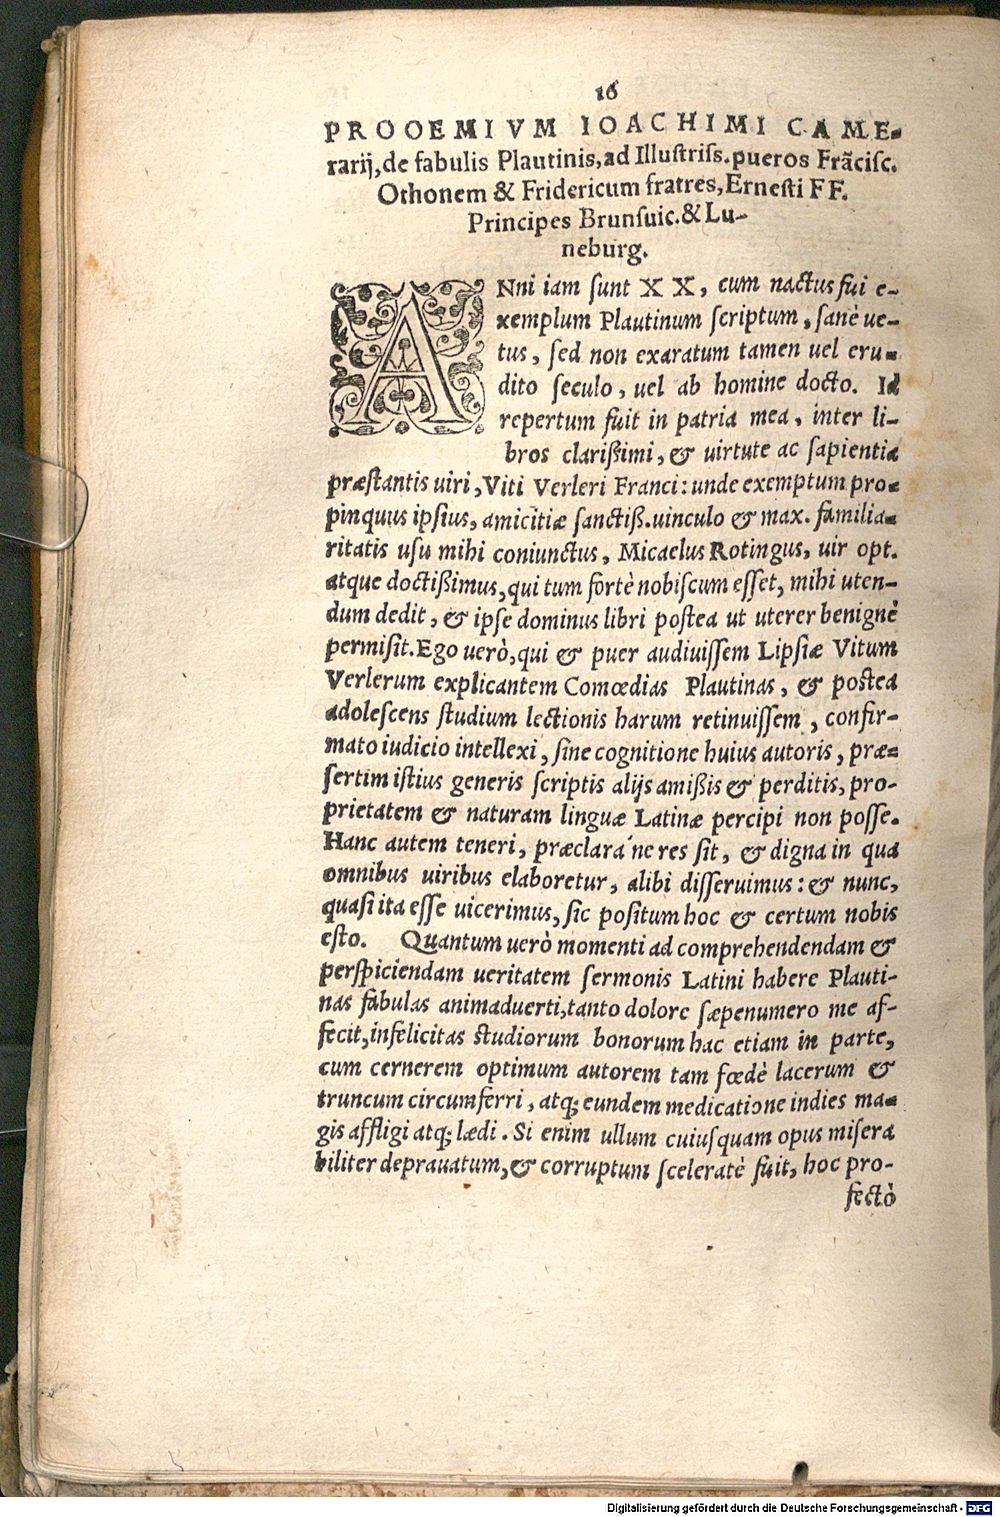 16
PROOEMIVM IOACHIMI CAME-
rarij, de fabulis Plautinis, ad Illustriſs. pueros Frãciſc.
Othonem & Fridericum fratres, Ernesti FF.
Principes Brunſuic. & Lu-
neburg.
ANni iam ſunt XX, cum nactus fui e-
xemplum Plautinum ſcriptum, ſanè ue-
tus, ſed non exaratum tamen uel eru-
dito ſeculo, uel ab homine docto. Id
repertum fuit in patria mea, inter li-
bros clarißimi, & uirtute ac ſapientia
præſtantis uiri, Viti Verleri Franci: unde exemptum pro-
pinquus ipſius, amicitiæ ſanctiß. uinculo & max. familia-
ritatis uſu mihi coniunctus, Micaelus Rotingus, uir opt.
atque doctißimus, qui tum fortè nobiſcum eſſet, mihi uten-
dum dedit, & ipſe dominus libri poſtea ut uterer benignè
permiſit. Ego uerò, qui & puer audiuiſſem Lipſiæ Vitum
Verlerum explicantem Comœdias Plautinas, & poſtea
adoleſcens ſtudium lectionis harum retinuiſſem, confir-
mato iudicio intellexi, ſine cognitione huius autoris, præ-
ſertim iſtius generis ſcriptis alijs amißis & perditis, pro-
prietatem & naturam linguæ Latinæ percipi non poſſe.
Hanc autem teneri, præclara´ne res ſit, & digna in qua
omnibus uiribus elaboretur, alibi diſſeruimus: & nunc,
quaſi ita eſſe uicerimus, ſic poſitum hoc & certum nobis
eſto. Quantum uerò momenti ad comprehendendam &
perſpiciendam ueritatem ſermonis Latini habere Plauti-
nas fabulas animaduerti, tanto dolore ſæpenumero me af-
fecit, infelicitas ſtudiorum bonorum hac etiam in parte,
cum cernerem optimum autorem tam fœdè lacerum &
truncum circumferri, atq; eundem medicatione indies ma-
gis affligi atq; lædi. Si enim ullum cuiuſquam opus miſera
biliter deprauatum, & corruptum ſceleratè fuit, hoc pro-
fectò
Digitalisierung gefördert durch die Deutsche Forschungsgemeinschaft - DFG